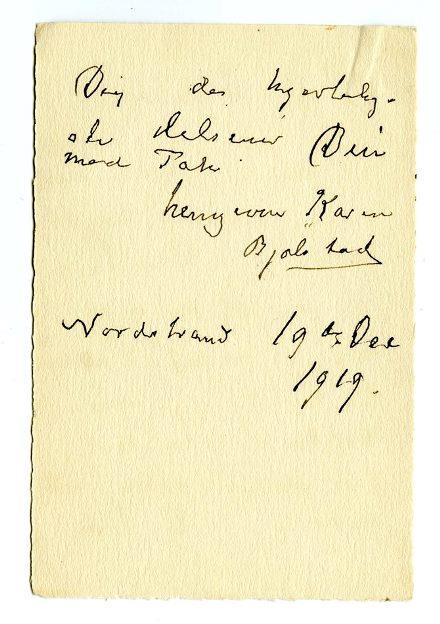 Dig hjertelig-
ste Hilsener Din
med Tak
hengivne Karen
Bjølstad
Nordstrand 19de Dec
1919.